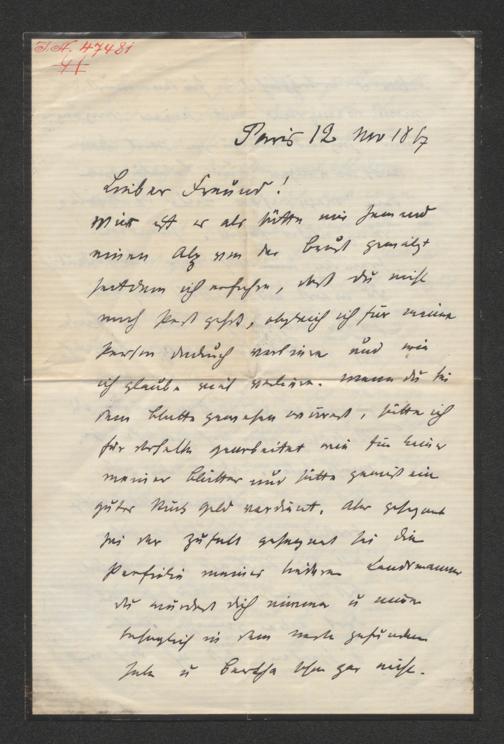 J.N. 47481
Paris 12 Nov 1867
Lieber Freund!
Mir ist es als hätte mir Jemand
einen Alp von der Brust gewälzt
seitdem ich erfahre, daß du nicht
nach Pest gehst, obgleich ich für meine
Person dadurch verliere und wie
ich glaube viel verliere. Wenn du bei
dem Blatte gewesen wärest, hätte ich
für dasselbe gearbeitet wie für keines
meiner Blätter und hätte gewiß ein
gutes Stück Geld verdient. Aber gesegnet
sei der Zufall gesegnet sei die
Perfidie meines Landsmannes
du würdest dich nimmer u nimmer
behaglich in dem Neste gefunden
haben u Bertha schon gar nicht.